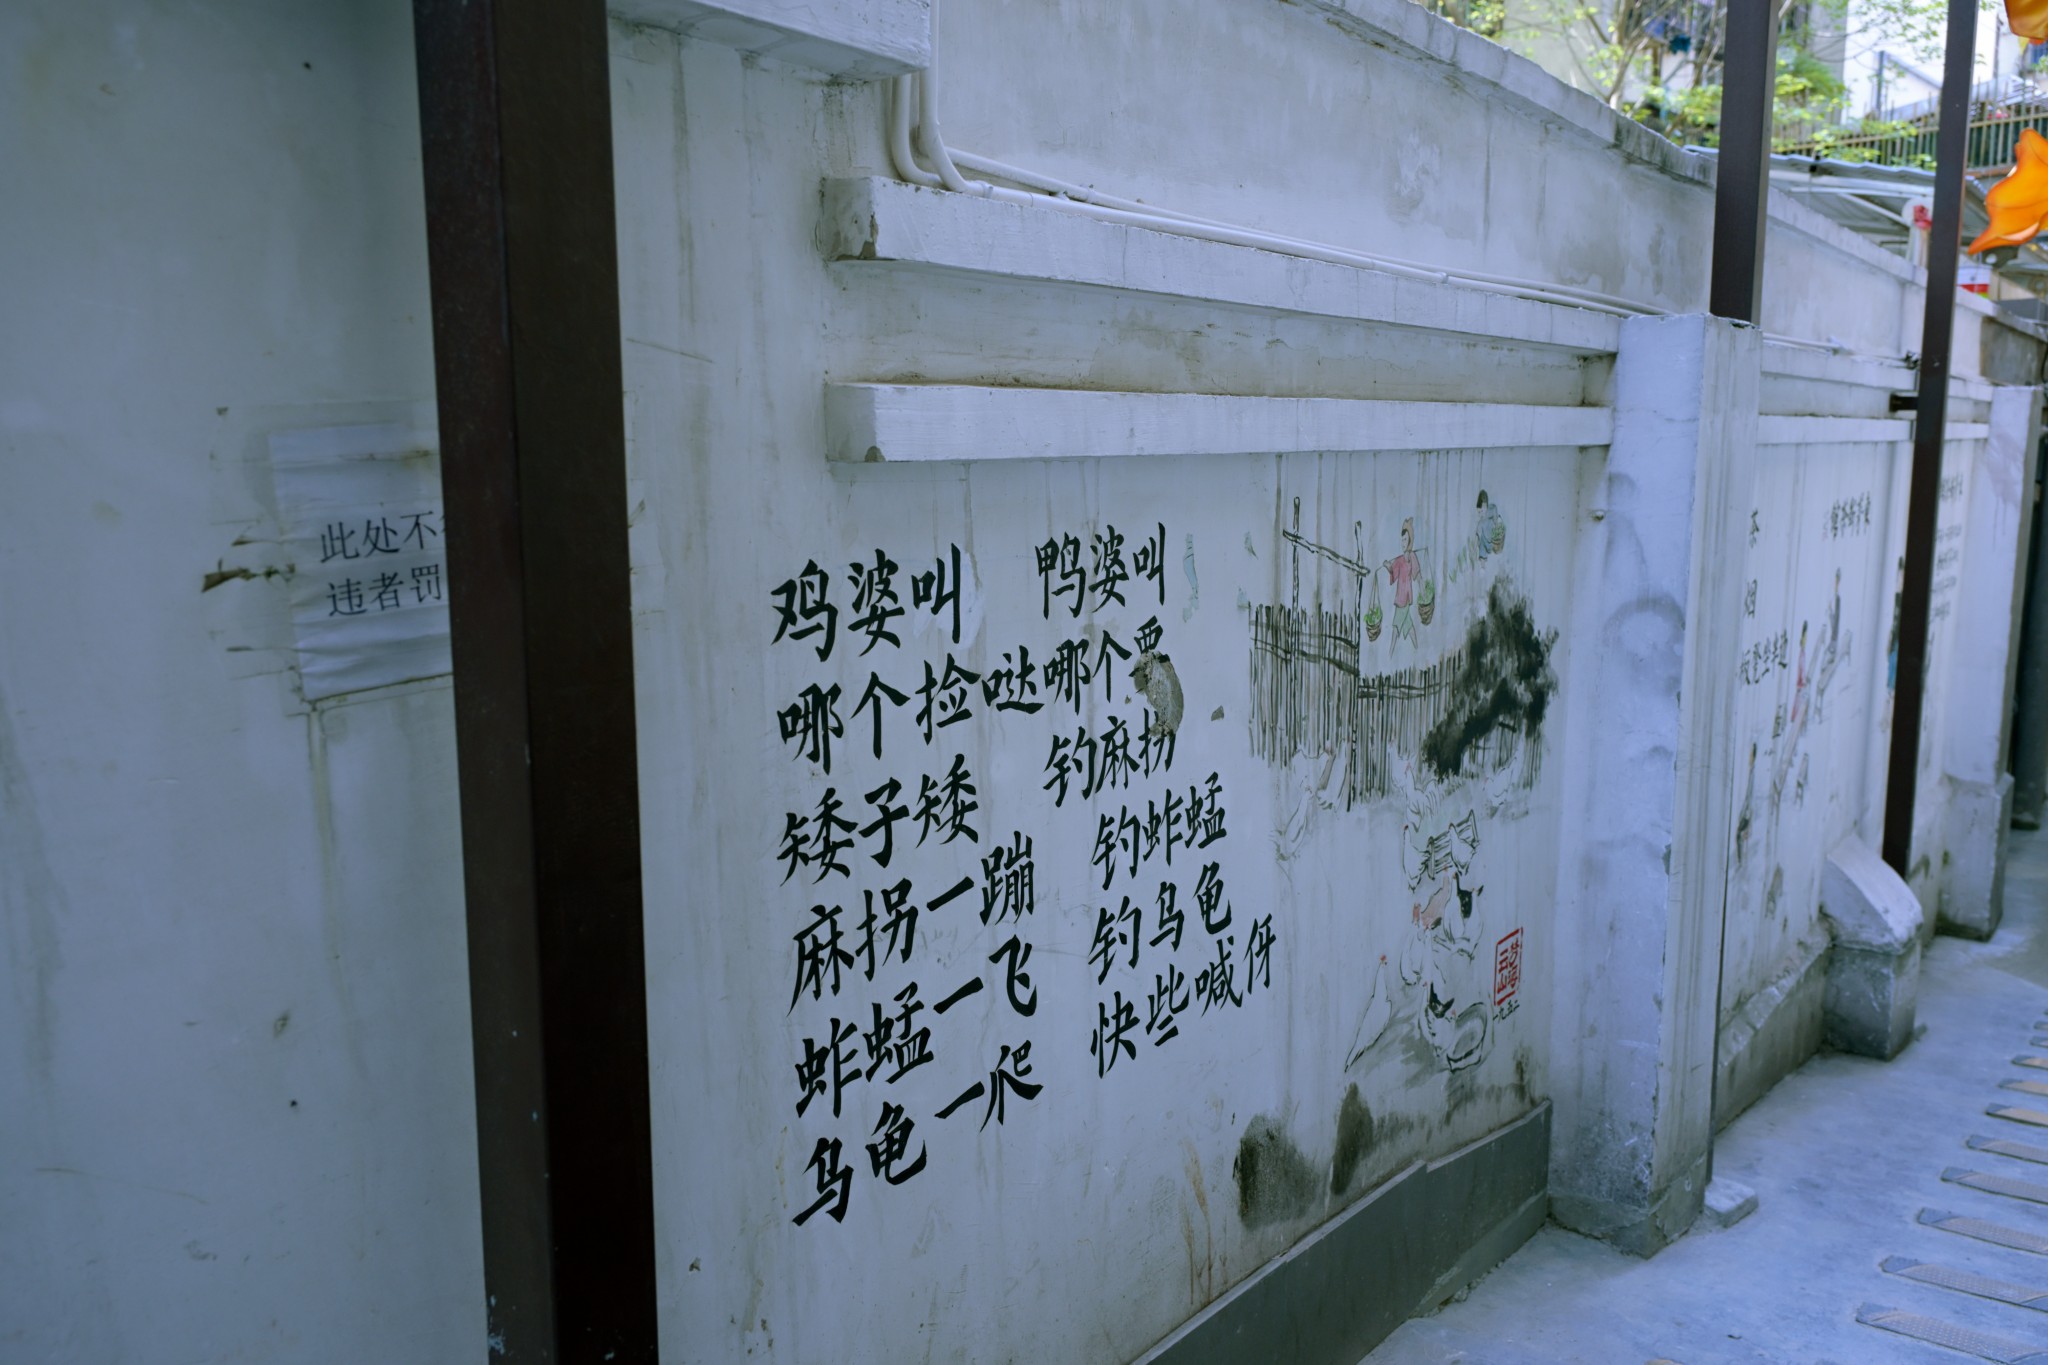 此处不
违者罚
鸡婆叫
哪个捡哒
矮子矮
麻拐一蹦
蚱蜢一飞
乌龟一爬
鸭婆叫
哪个要
钓麻拐
钓蚱蜢
钓乌龟
快些喊伢
一九五二